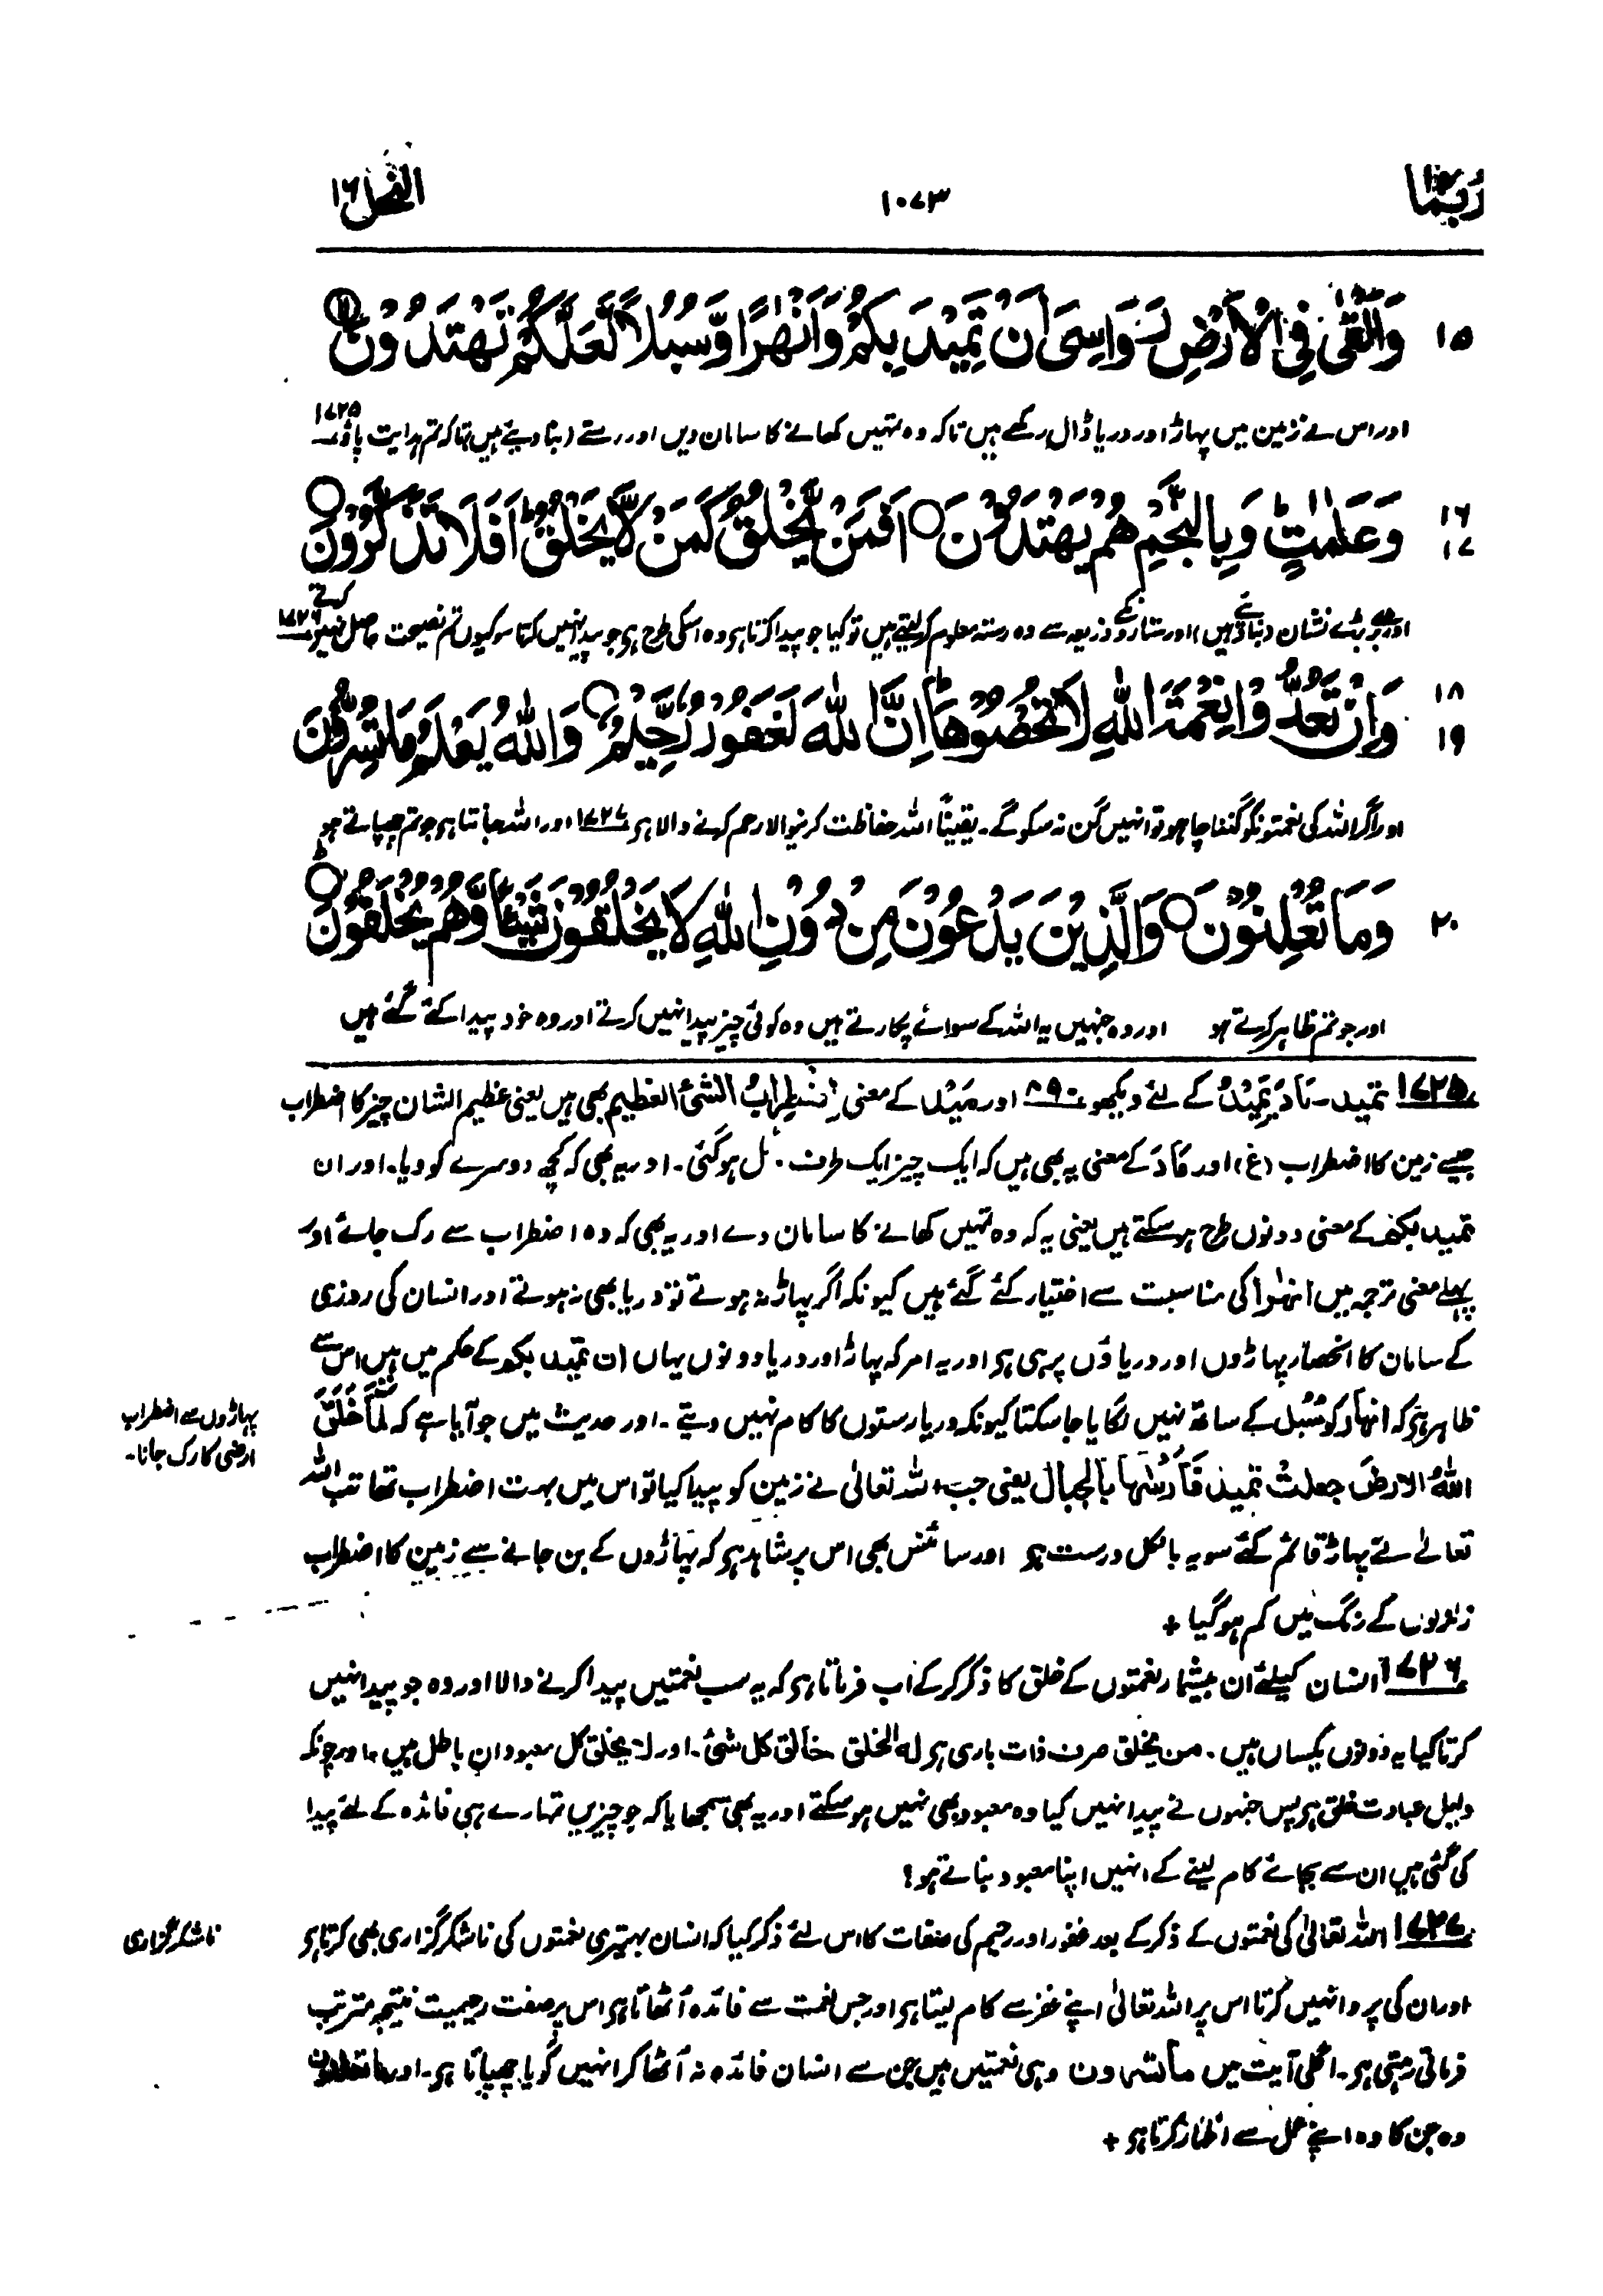 ربما ۱۴
۱۰۷۳
النحل ۱۶
۱۵ وَاَلْقٰى فِي الْاَرْضِ رَوَاسِيَ اَنْ تَمِيْدَ بِكُمْ وَاَنْهٰرًا وَّسُبُلًا لَّعَلَّكُمْ تَهْتَدُوْنَ ۝
اور اس نے زمین میں پہاڑ اور دریا ڈال رکھے ہیں تاکہ وہ تمہیں کھانے کا سامان دیں اور رستے (بنا دیئے ہیں) تاکہ تم ہدایت پاؤ ۱۷۲۵
۱۶ ۱۷ وَعَلٰمٰتٍ ؕ وَبِالنَّجْمِ هُمْ يَهْتَدُوْنَ ۝ اَفَمَنْ يَّخْلُقُ كَمَنْ لَّا يَخْلُقُ ؕ اَفَلَا تَذَكَّرُوْنَ ۝
اور بڑے بڑے نشان (بنائے ہیں) اور ستاروں کے ذریعہ سے وہ رستہ معلوم کر لیتے ہیں تو کیا جو پیدا کرتا ہے وہ اسکی طرح ہے جو پیدا نہیں کرتا سو کیوں تم نصیحت حاصل نہیں کرتے ۱۷۲۶
۱۸ ۱۹ وَاِنْ تَعُدُّوْا نِعْمَةَ اللّٰهِ لَا تُحْصُوْهَا ؕ اِنَّ اللّٰهَ لَغَفُوْرٌ رَّحِيْمٌ ۝ وَاللّٰهُ يَعْلَمُ مَا تُسِرُّوْنَ
اور اگر اللہ کی نعمتونکو گننا چاہو تو انہیں گن نہ سکو گے۔ یقیناً اللہ حفاظت کرنیوالا رحم کرنے والا ہے ۱۷۲۷ اور اللہ جانتا ہے جو تم چھپاتے ہو
۲۰ وَمَا تُعْلِنُوْنَ ۝ وَالَّذِيْنَ يَدْعُوْنَ مِنْ دُوْنِ اللّٰهِ لَا يَخْلُقُوْنَ شَيْئًا وَّهُمْ يُخْلَقُوْنَ ۝
اور جو تم ظاہر کرتے ہو اور وہ جنہیں یہ اللہ کے سوائے پکارتے ہیں وہ کوئی چیز پیدا نہیں کرتے اور وہ خود پیدا کئے گئے ہیں
۱۷۲۵ تمید۔ مَادَ یَمِیْدُ کے لئے دیکھو ۸۹۰ اور مَیْد کے معنی اضطرابُ الشیٔ العظیم بھی ہیں یعنی عظیم الشان چیز کا اضطراب
جیسے زمین کا اضطراب (غ) اور مَادَ کے معنی یہ بھی ہیں کہ ایک چیز ایک طرف ئل ہو گئی۔ اور یہ بھی کہ کچھ دوسرے کو دیا۔ اور ان
تمید بکم کے معنی دونوں طرح ہو سکتے ہیں یعنی یہ کہ وہ تمہیں کھانے کا سامان دے اور یہ بھی کہ وہ اضطراب سے رک جائے اور
پہلے معنی ترجمہ میں انھٰرا کی مناسبت سے اختیار کئے گئے ہیں کیونکہ اگر پہاڑ نہ ہوتے تو دریا بھی نہ ہوتے اور انسان کی روزی
کے سامان کا انحصار پہاڑوں اور دریاؤں پر ہی ہے اور یہ امر کہ پہاڑ اور دریا دونوں یہاں ان تمید بکم کے حکم میں ہیں اس سے
ظاہر ہے کہ انہار کو سُبُل کے ساتھ نہیں لگایا جا سکتا کیونکہ دریا رستوں کا کام نہیں دیتے۔ اور حدیث میں جو آیا ہے کہ لَمَّا خَلَقَ
پہاڑوں سے اضطراب
ارضی کا رک جانا۔
اللّٰہُ الارض جعلت تمید فَاَرْسٰہا بالجبال یعنی جب اللہ تعالیٰ نے زمین کو پیدا کیا تو اس میں بہت اضطراب تھا تب اللہ
تعالےٰ نے پہاڑ قائم کئے سو یہ بالکل درست ہے اور سائنس بھی اس پر شاہد ہے کہ پہاڑوں کے بن جانے سے زمین کا اضطراب
زلزلوں کے رنگ میں کم ہو گیا +
۱۷۲۶ انسان کیلئے ان بیشمار نعمتوں کے خلق کا ذکر کر کے اب فرماتا ہے کہ یہ سب نعمتیں پیدا کرنے والا اور وہ جو پیدا نہیں
کرتا کیا یہ دونوں یکساں ہیں۔ من یخلق صرف ذات باری ہے لہ الخلق خالق کل شیٔ۔ اور لا یخلق کل معبودانِ باطل ہیں، اور چونکہ
دلیل عبادت خلق ہے پس جنہوں نے پیدا نہیں کیا وہ معبود بھی نہیں ہو سکتے اور یہ بھی سمجھایا کہ جو چیزیں تمہارے ہی فائدہ کے لئے پیدا
کی گئی ہیں ان سے بجائے کام لینے کے انہیں اپنا معبود بناتے ہو؟
۱۷۲۷ اللہ تعالیٰ کی نعمتوں کے ذکر کے بعد غفور اور رحیم کی صفات کا اس لئے ذکر کیا کہ انسان بہتیری نعمتوں کی ناشکر گزاری بھی کرتا ہے
ناشکر گزاری
اور ان کی پروا نہیں کرتا اس پر اللہ تعالیٰ اپنے غفر سے کام لیتا ہے اور جس نعمت سے فائدہ اُٹھاتا ہے اس پر صفت رحیمیت نتیجہ مترتب
فرماتی رہتی ہے۔ اگلی آیت میں ما تسرون وہی نعمتیں ہیں جن سے انسان فائدہ نہ اُٹھا کر انہیں گویا چھپاتا ہے۔ اور ما تعلنون
وہ جن کا وہ اپنے عمل سے اظہار کرتا ہے +